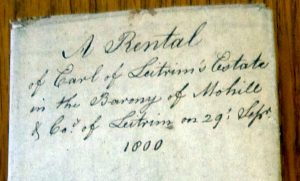 A Rental
of Earl of Leitrim's Estate
in the Barony of Mohill
& Co.y of Leitrim on 29.t Sept.r
1800